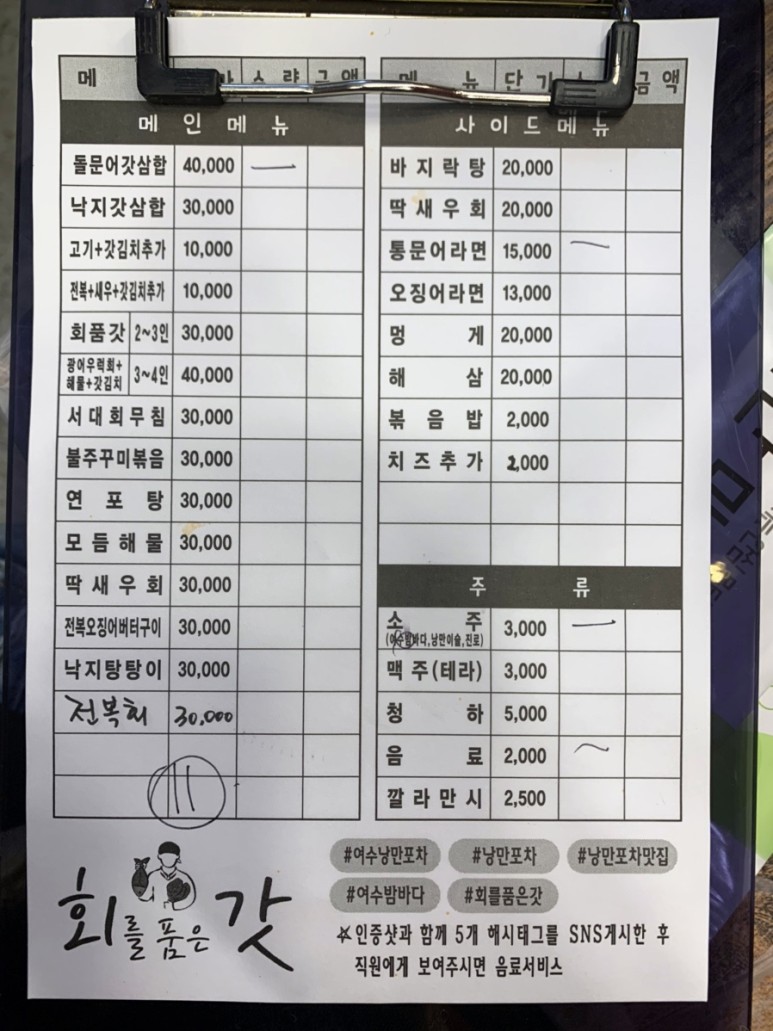 메 수량 금액
메인메뉴
돌문어갓삼합 40,000 —
낙지갓삼합 30,000
고기+갓김치추가 10,000
전복+새우+갓김치추가 10,000
회품갓 2~3인 30,000
광어우럭회+해물+갓김치 3~4인 40,000
서대회무침 30,000
불주꾸미볶음 30,000
연포탕 30,000
모듬해물 30,000
딱새우회 30,000
전복오징어버터구이 30,000
낙지탕탕이 30,000
전복회 30,000
11
메뉴 단가 금액
사이드메뉴
바지락탕 20,000
딱새우회 20,000
통문어라면 15,000 —
오징어라면 13,000
멍게 20,000
해삼 20,000
볶음밥 2,000
치즈추가 2,000
주류
소주 3,000 —
(여수밤바다,낭만이슬,진로)
맥주(테라) 3,000
청하 5,000
음료 2,000 ~
깔라만시 2,500
회를품은갓
#여수낭만포차 #낭만포차 #낭만포차맛집
#여수밤바다 #회를품은갓
☆인증샷과 함께 5개 해시태그를 SNS게시한 후
직원에게 보여주시면 음료서비스